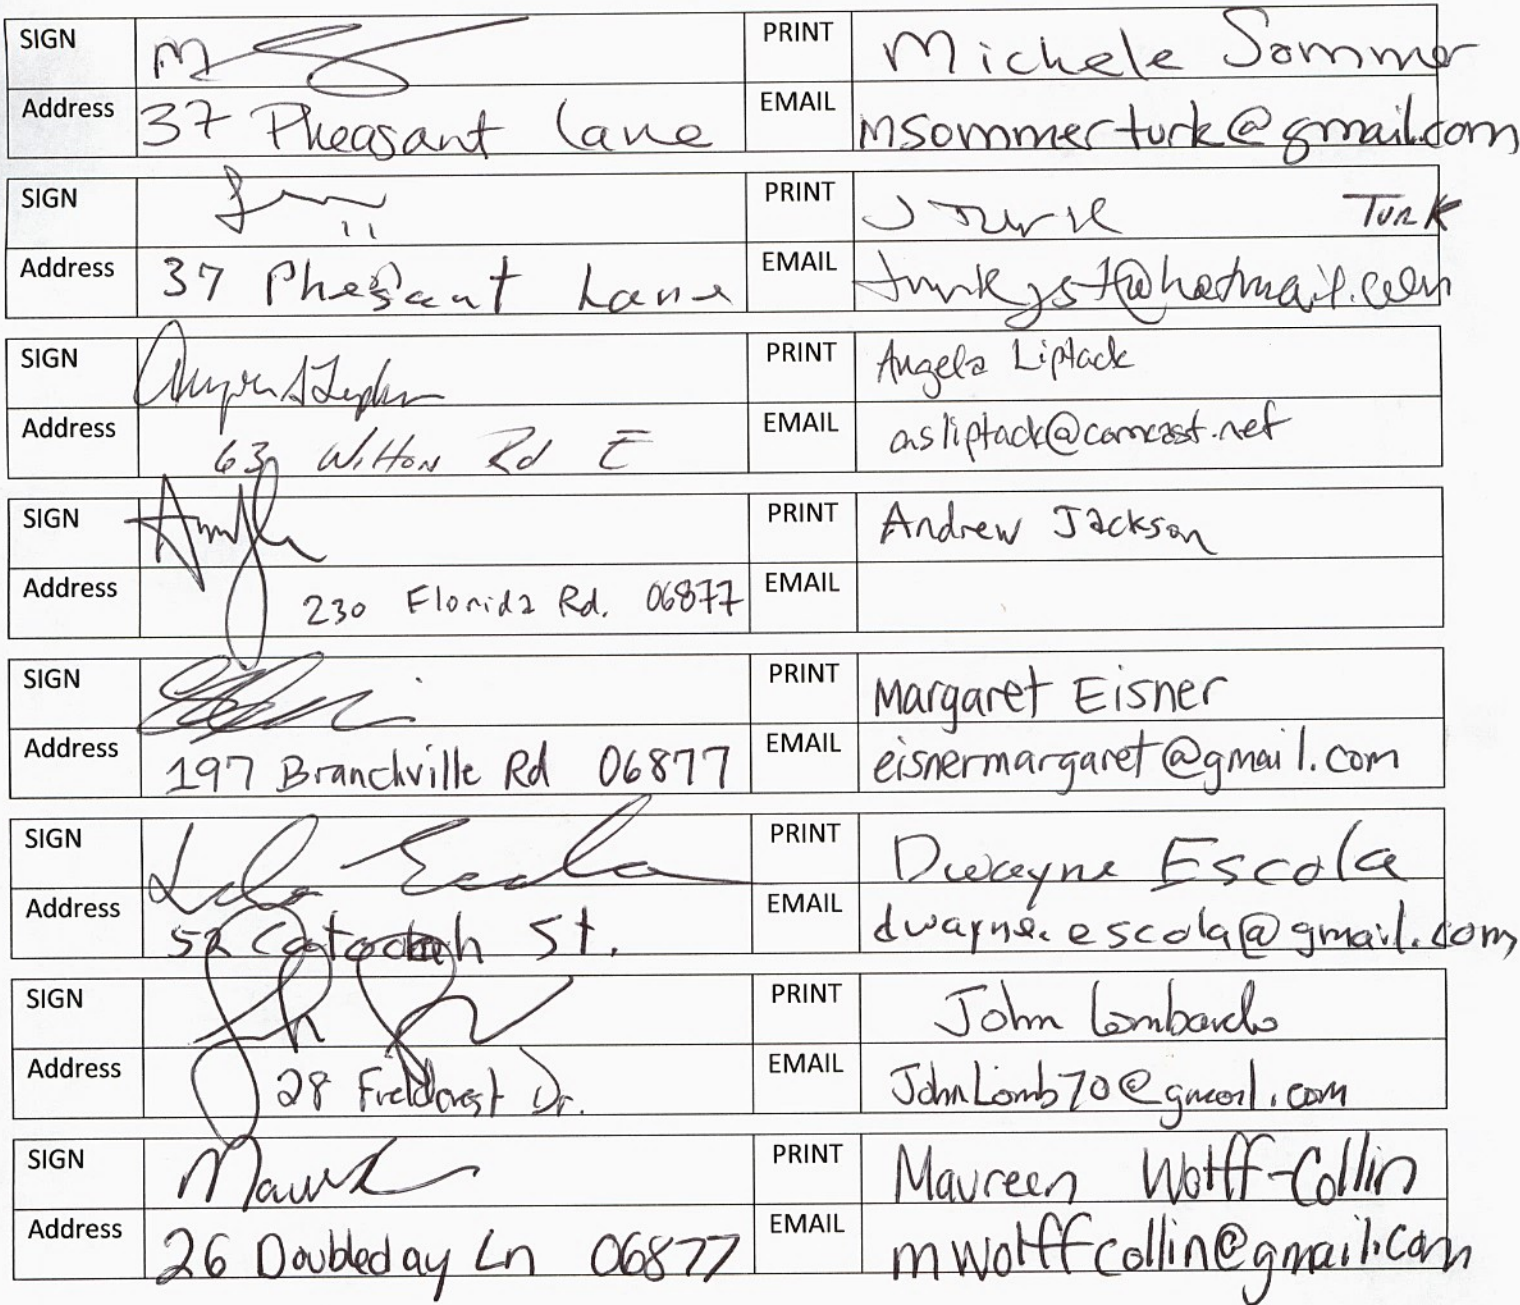 SIGN PRINT Michele Sommer
Address 37 Pheasant Lane EMAIL msommerturk@gmail.com
SIGN PRINT J Turk Turk
Address 37 Pheasant Lane EMAIL
SIGN PRINT Angela Liptack
Address 63 Wilton Rd E EMAIL asliptack@comcast.net
SIGN PRINT Andrew Jackson
Address 230 Florida Rd. 06877 EMAIL
SIGN PRINT Margaret Eisner
Address 197 Branchville Rd 06877 EMAIL eisnermargaret@gmail.com
SIGN PRINT Dwayne Escola
Address 52 St. EMAIL dwayne.escola@gmail.com
SIGN PRINT John Lombardo
Address 28 Fieldcrest Dr. EMAIL JohnLomb70@gmail.com
SIGN PRINT Maureen Wolff-Collin
Address 26 Doubleday Ln 06877 EMAIL mwolffcollin@gmail.com